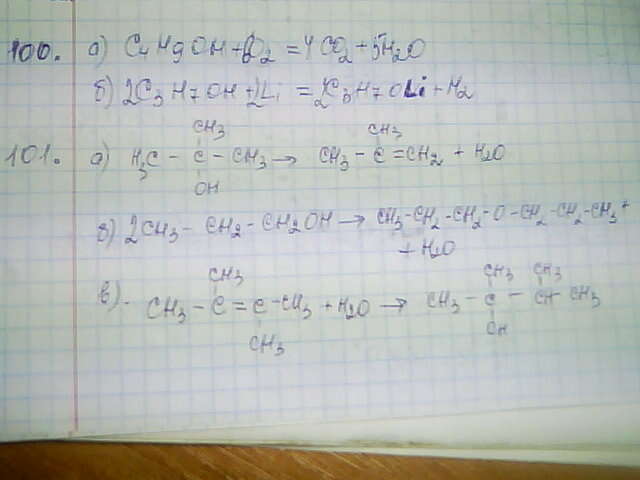 100. а) C4H9OH + 6O2 = 4CO2 + 5H2O
б) 2C3H7OH + 2Li = 2C3H7OLi + H2
CH3 CH3
101. а) H3C - C - CH3 → CH3 - C = CH2 + H2O
OH
б) 2CH3 - CH2 - CH2OH → CH3-CH2-CH2-O-CH2-CH2-CH3 +
+ H2O
CH3 CH3 CH3
в). CH3 - C = C - CH3 + H2O → CH3 - C - CH CH3
CH3 OH